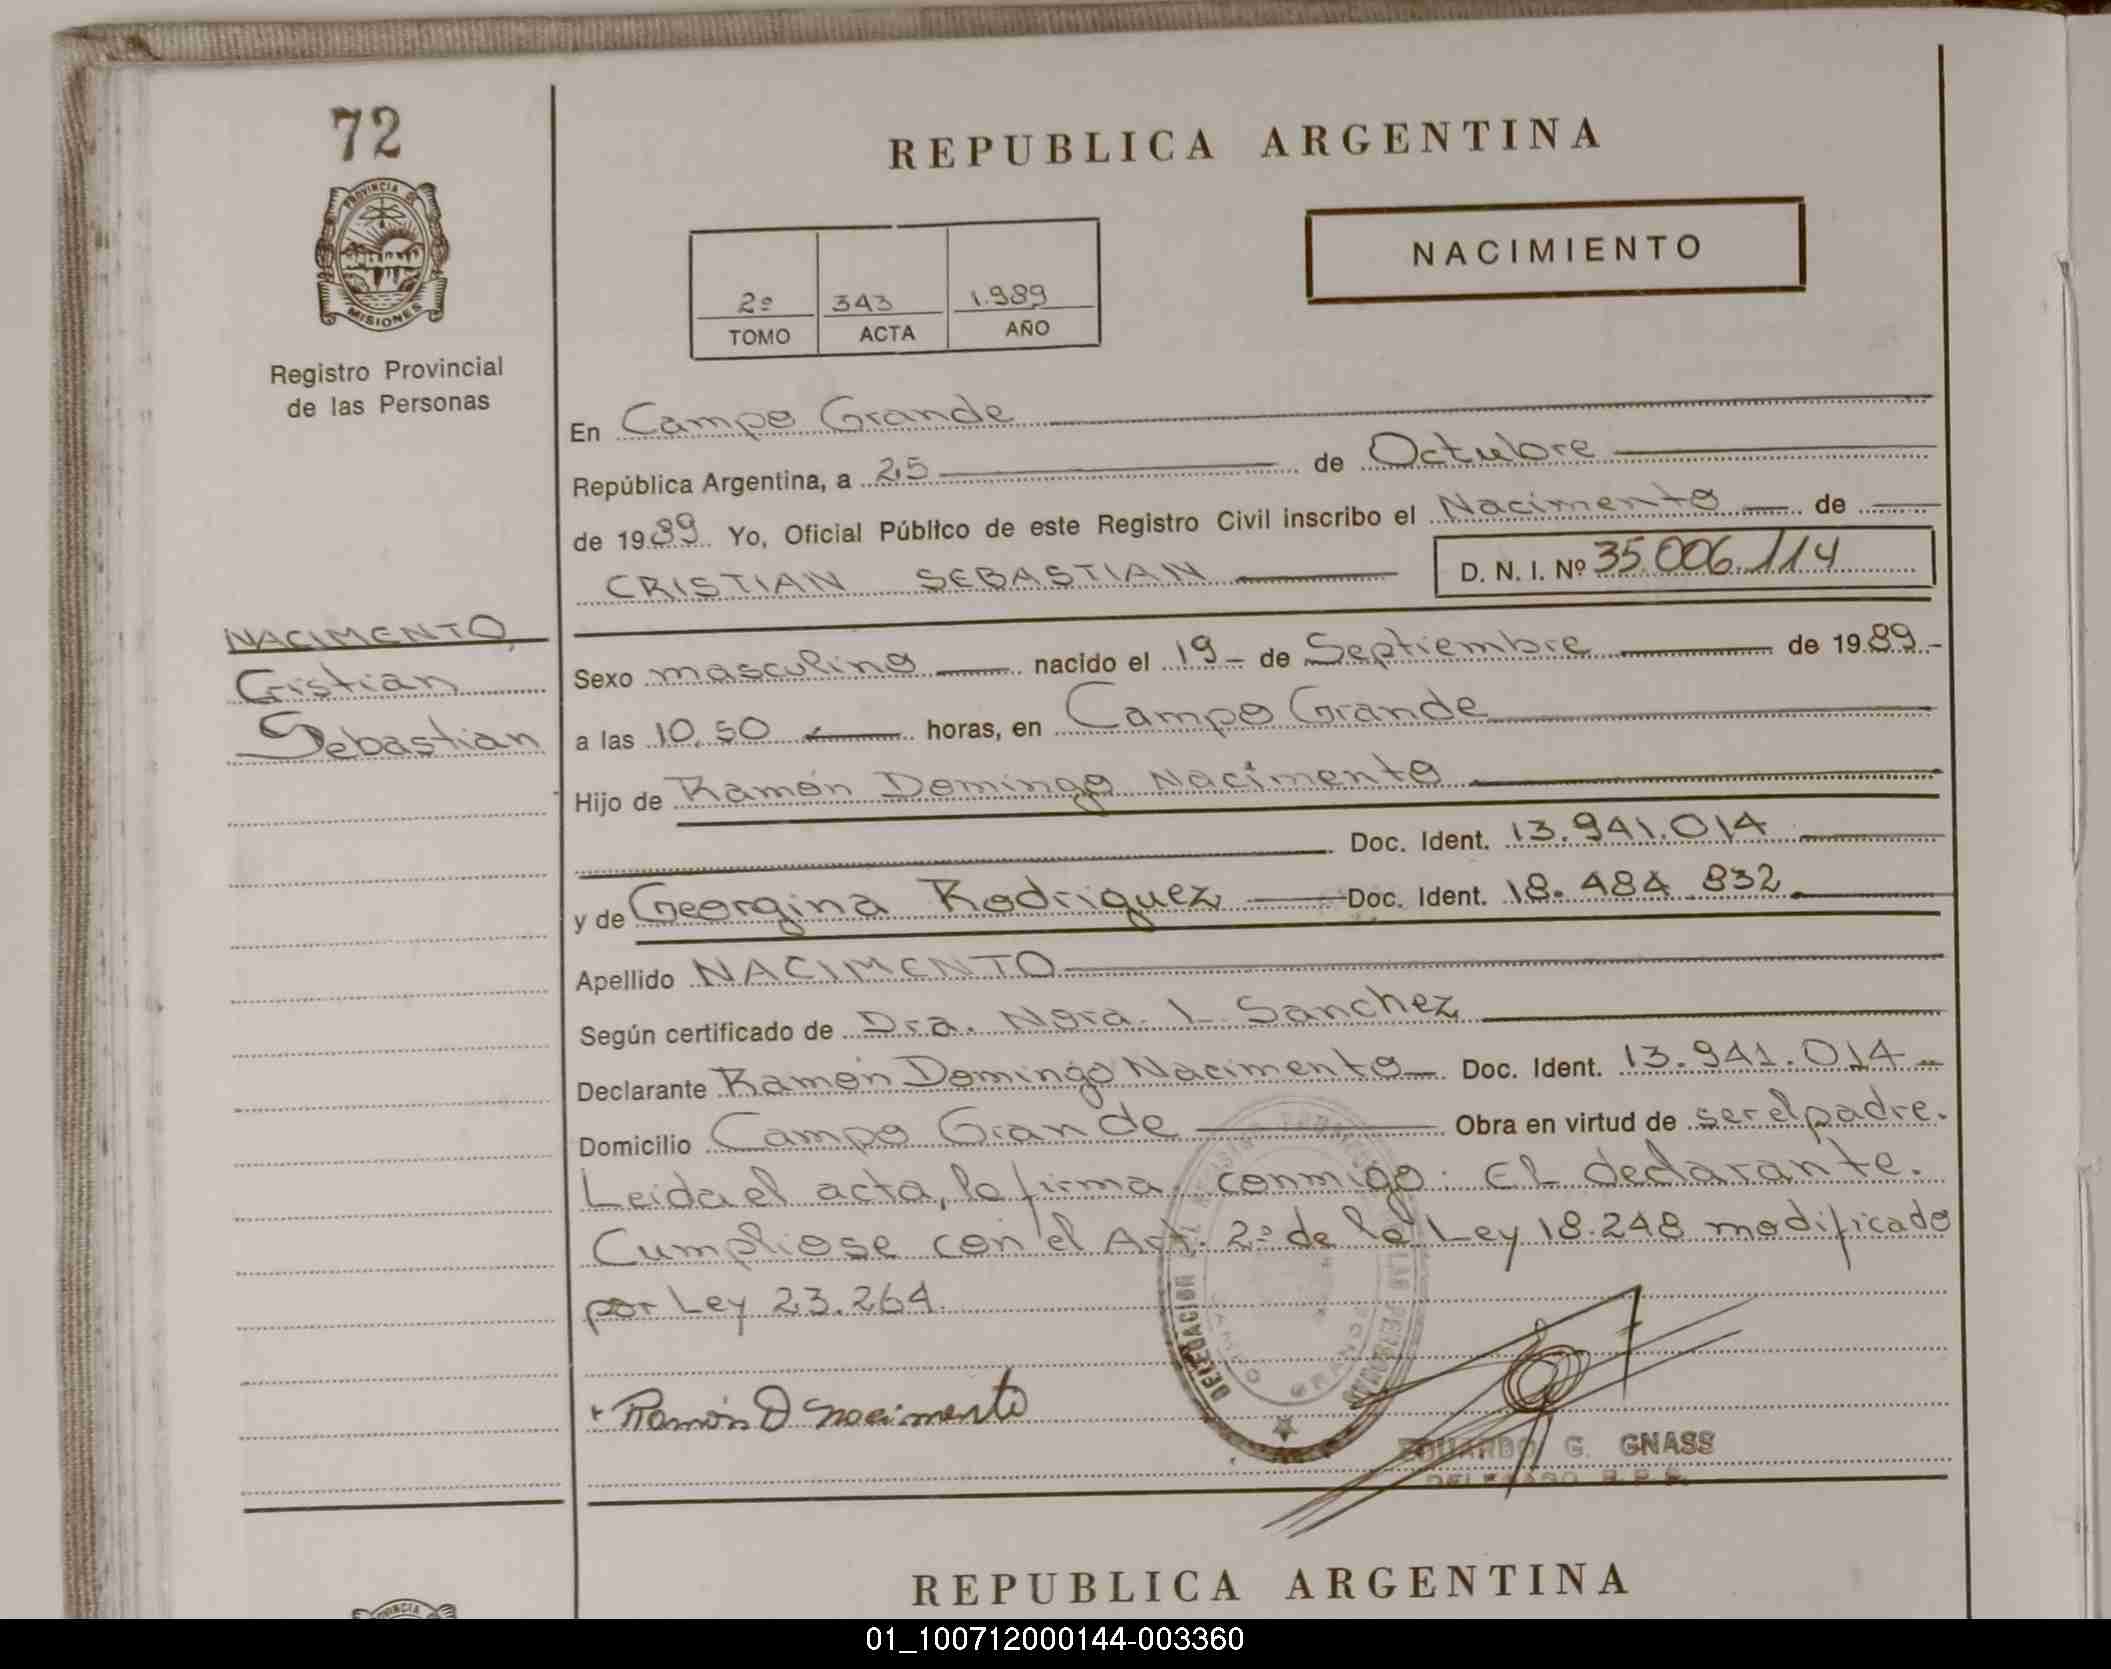 72
PROVINCIA DE
MISIONES
Registro Provincial
de las Personas
NACIMENTO,
Cristian
Sebastian
REPUBLICA ARGENTINA
NACIMIENTO
2º 343 1.989
TOMO ACTA AÑO
En Campo Grande
República Argentina, a 25 de Octubre
de 1989 Yo, Oficial Público de este Registro Civil inscribo el Nacimento de
CRISTIAN SEBASTIAN D. N. I. Nº 35.006.114
Sexo masculino nacido el 19 de Septiembre de 1989.-
a las 10,50 horas, en Campo Grande
Hijo de Ramón Domingo Nacimento
Doc. Ident. 13.941.014
y de Georgina Rodriguez Doc. Ident. 18.484.832
Apellido NACIMENTO
Según certificado de Dra. Nora L. Sanchez
Declarante Ramón Domingo Nacimento Doc. Ident. 13.941.014
Domicilio Campo Grande Obra en virtud de ser el padre.
Leida el acta, la firma conmigo: El declarante.
Cumpliose con el Art. 2º de la Ley 18.248 modificado
por Ley 23.264.
Ramón D Nacimento
DELEGACION
CAMPO GRANDE
EDUARDO G. GNASS
DELEGADO R.P.P.
REPUBLICA ARGENTINA
01_100712000144-003360